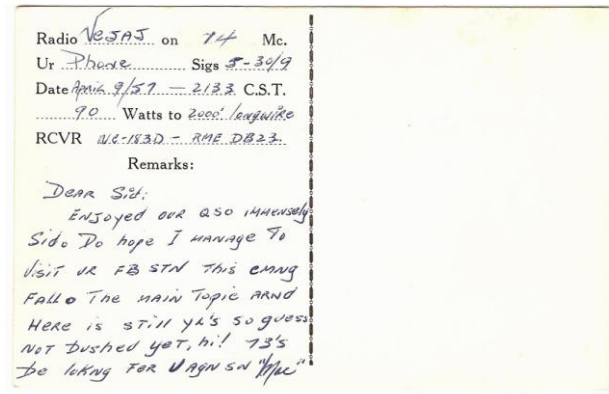 Radio Ve5AJ on 14 Mc.
Ur Phone Sigs 5-30/9
Date April 9/57 - 2133 C.S.T.
90 Watts to 2000' longwire
RCVR NC-183D - RME DB23
Remarks:
Dear Sid:
Enjoyed our QSO immensely
Sid. Do hope I manage to
visit ur FB STN this cmng
Fall. The main topic arnd
here is still YL's so guess
not bushed yet, hi! 73's
be lokng for U agn sn "Mac"